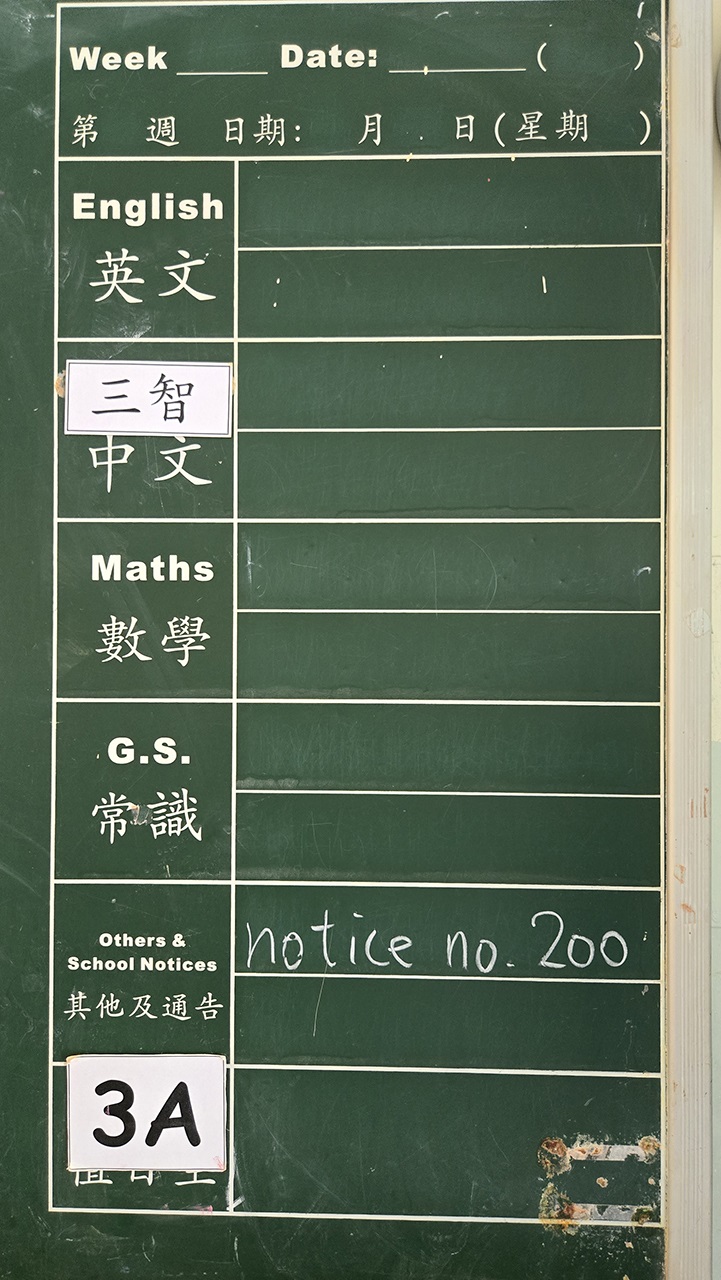 Week ____ Date: ______ ( )
第 週 日期: 月 日 (星期 )
English
英文
三智
中文
Maths
數學
G.S.
常識
Others &
School Notices
其他及通告
notice no. 200
3A